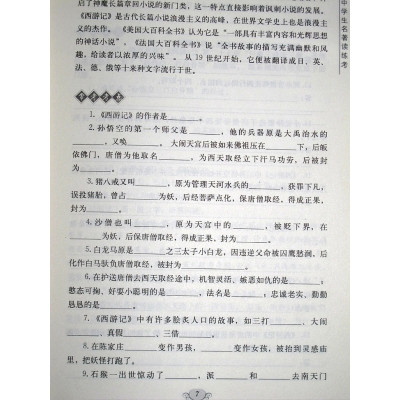 启了神魔长篇章回小说的新门类，这一特点直接影响着讽刺小说的发展。
《西游记》是古代长篇小说浪漫主义的高峰，在世界文学史上也是浪漫主
义的杰作。《美国大百科全书》认为它是“一部具有丰富内容和光辉思想
的神话小说”，《法国大百科全书》说“全书故事的描写充满幽默和风
趣，给读者以浓厚的兴味”。从 19 世纪开始，它便被翻译成日、英、
法、德、俄等十来种文字流行于世。
1.《西游记》的作者是______。
2.孙悟空的第一个师父是______，他的兵器原是大禹治水的
______，又唤______。大闹天宫后被如来佛祖压在______下；后皈
依佛门，唐僧为他取名______。为西天取经立下汗马功劳，后被封为
______。
3.猪八戒又叫______，原为管理天河水兵的______，获罪下凡，
误投猪胎，曾占______为妖，后经菩萨点化，保唐僧取经，得成正果，封为
______。
4.沙僧也叫______，原为天宫中的______，被贬下界，在
______为妖，后保唐僧取经，得成正果，封为______。
5.白龙马原是______之三太子小白龙，因违逆父命被囚鹰愁涧，后
化作白马驮负唐僧取经，被封为______。
6.在护送唐僧去西天取经途中，机智灵活、嫉恶如仇的是______；
憨态可掬、好耍小聪明的是______，法名是______；忠诚老实、勤勤
恳恳的是______。
7.《西游记》中有许多脍炙人口的故事，如三打______，大闹
______、真假______、三借______。
8.在陈家庄______变作男孩，______变作女孩，被抬到灵感庙
里，把妖怪打跑了。
9.石猴一出世惊动了______，派______和______去南天门
7
中学生名著读练考